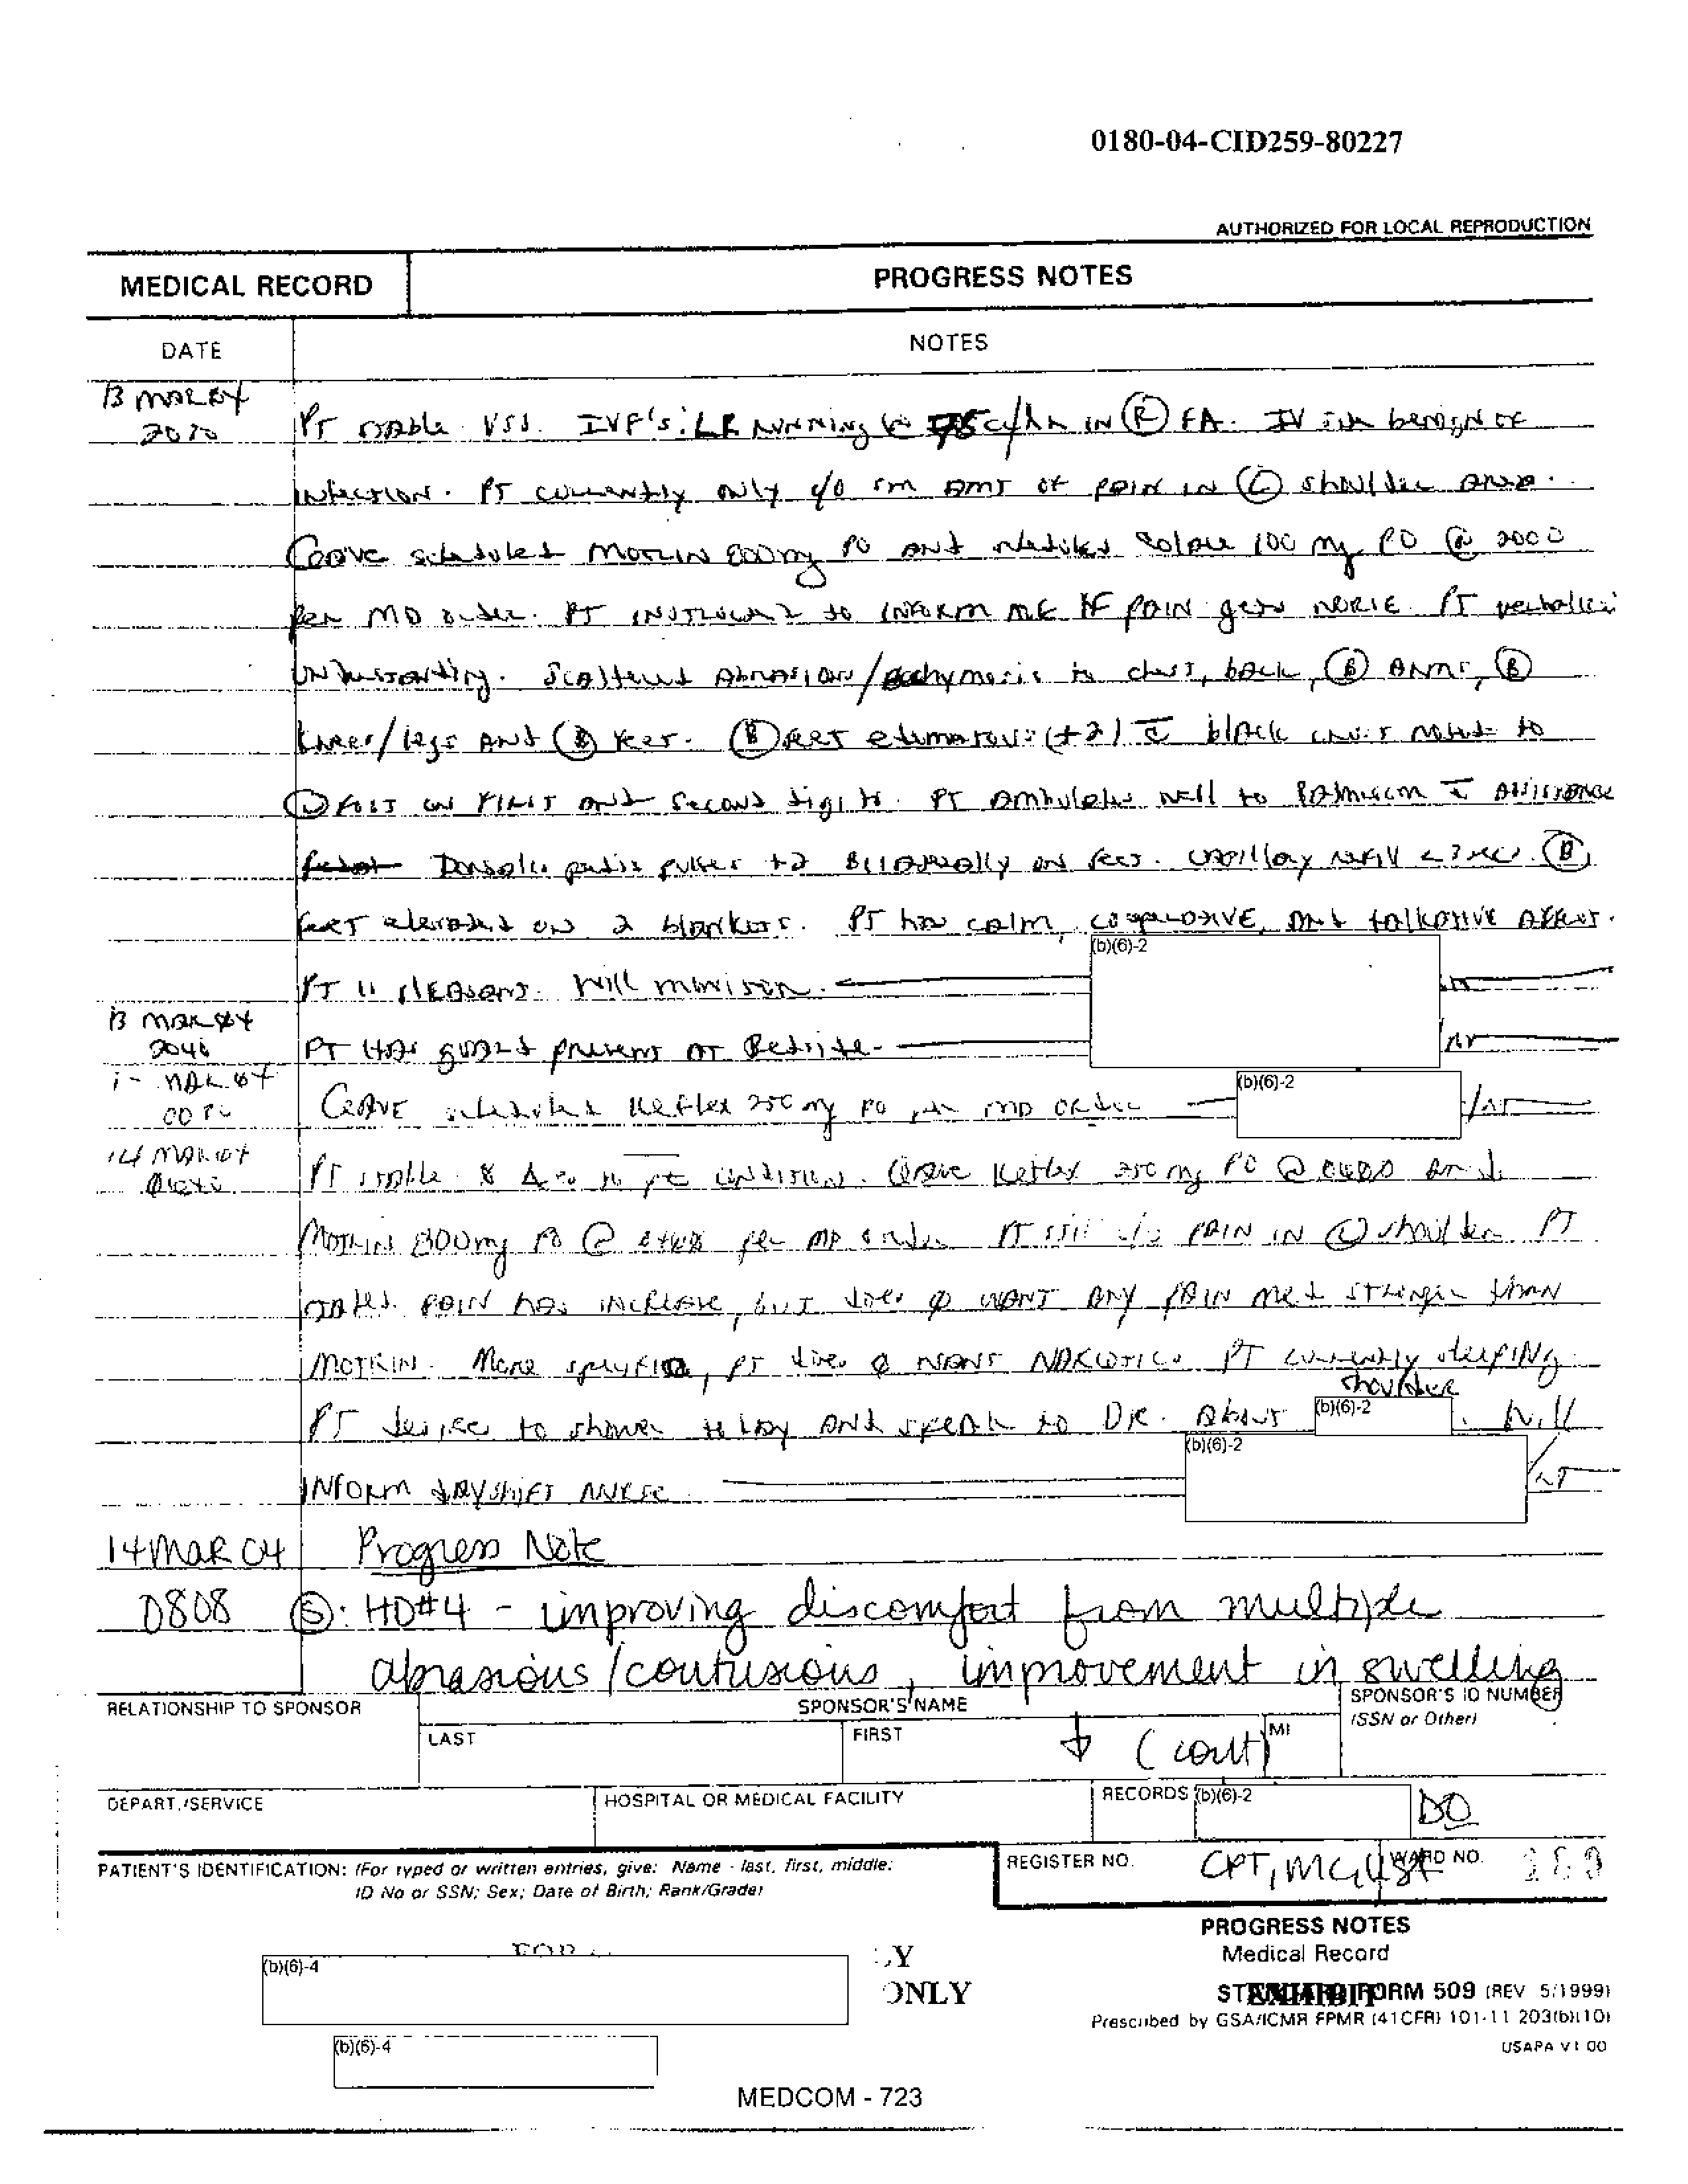 0180-04-CID259-80227
AUTHORIZED FOR LOCAL REPRODUCTION
MEDICAL RECORD
PROGRESS NOTES
DATE
NOTES
13 MAR 04
PT stable VSS. IVF's: LR running @ 75cc/hr in (R) FA. IV site benign of
infection. PT currently only c/o sm amt of pain in (L) shoulder area.
Gave scheduled Motrin 800mg PO and 100 mg PO @ 2000
per MD order. PT instructed to inform me if pain gets worse. PT
understanding. Scattered abrasions/ecchymosis to chest, back, (B) arms, (B)
knees/legs and (B) feet. (B) feet edematous (+2) c̄ black noted to
(L) foot on first and second digits. PT ambulates well to c̄ assistance
Dorsalis pedis pulses +2 bilaterally on feet. capillary refill <3 sec. (B)
feet elevated on 2 blankets. PT has calm, cooperative, and talkative affect.
(b)(6)-2
PT is pleasant. Will monitor.
13 MAR 04
2046
PT has guard present at bedside.
MAR 04
(b)(6)-2
Gave scheduled Keflex 250 mg PO per MD order
14 MAR 04
PT stable. Ø Δ to pt condition. Gave Keflex 250 mg PO @ 0400 and
Motrin 800mg PO @ per MD order PT still c/o pain in (L) shoulder PT
states pain has increase, but does Ø want any pain med stronger than
Motrin. More specific, pt does Ø want narcotics PT currently sleeping
shoulder
PT desires to shower today and speak to Dr. about (b)(6)-2. Will
(b)(6)-2
inform dayshift nurse
14 MAR 04 Progress Note
0808 (S): HD#4 - improving discomfort from multiple
abrasions/contusions, improvement in swelling
RELATIONSHIP TO SPONSOR
SPONSOR'S NAME
SPONSOR'S ID NUMBER
(SSN or Other)
LAST
FIRST
MI
↓ (cont)
DEPART./SERVICE
HOSPITAL OR MEDICAL FACILITY
RECORDS
(b)(6)-2
DO
PATIENT'S IDENTIFICATION: (For typed or written entries, give: Name - last, first, middle;
ID No or SSN; Sex; Date of Birth; Rank/Grade)
REGISTER NO.
WARD NO.
CPT, MC, USA
PROGRESS NOTES
Medical Record
STANDARD FORM 509 (REV 5/1999)
EXHIBIT
Prescribed by GSA/ICMR FPMR (41CFR) 101-11 203(b)(10)
USAPA V1 00
(b)(6)-4
ONLY
(b)(6)-4
MEDCOM - 723